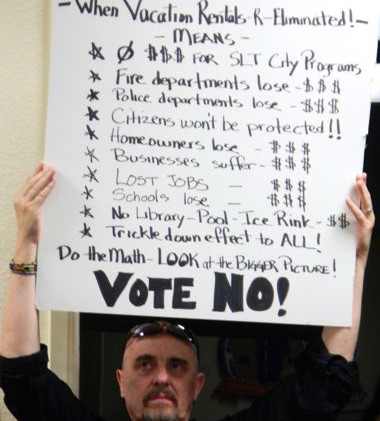 - When Vacation Rentals R-Eliminated! -
- MEANS -
* Ø $$$ FOR SLT City Programs
* Fire departments lose - $$$
* Police departments lose - $$$
* Citizens won't be protected!!
* Homeowners lose - $$$
* Businesses suffer - $$$
* LOST JOBS - $$$
* Schools lose - $$$
* No Library - Pool - Ice Rink - $$
* Trickle down effect to ALL!
Do the Math - LOOK at the BIGGER PICTURE!
VOTE NO!